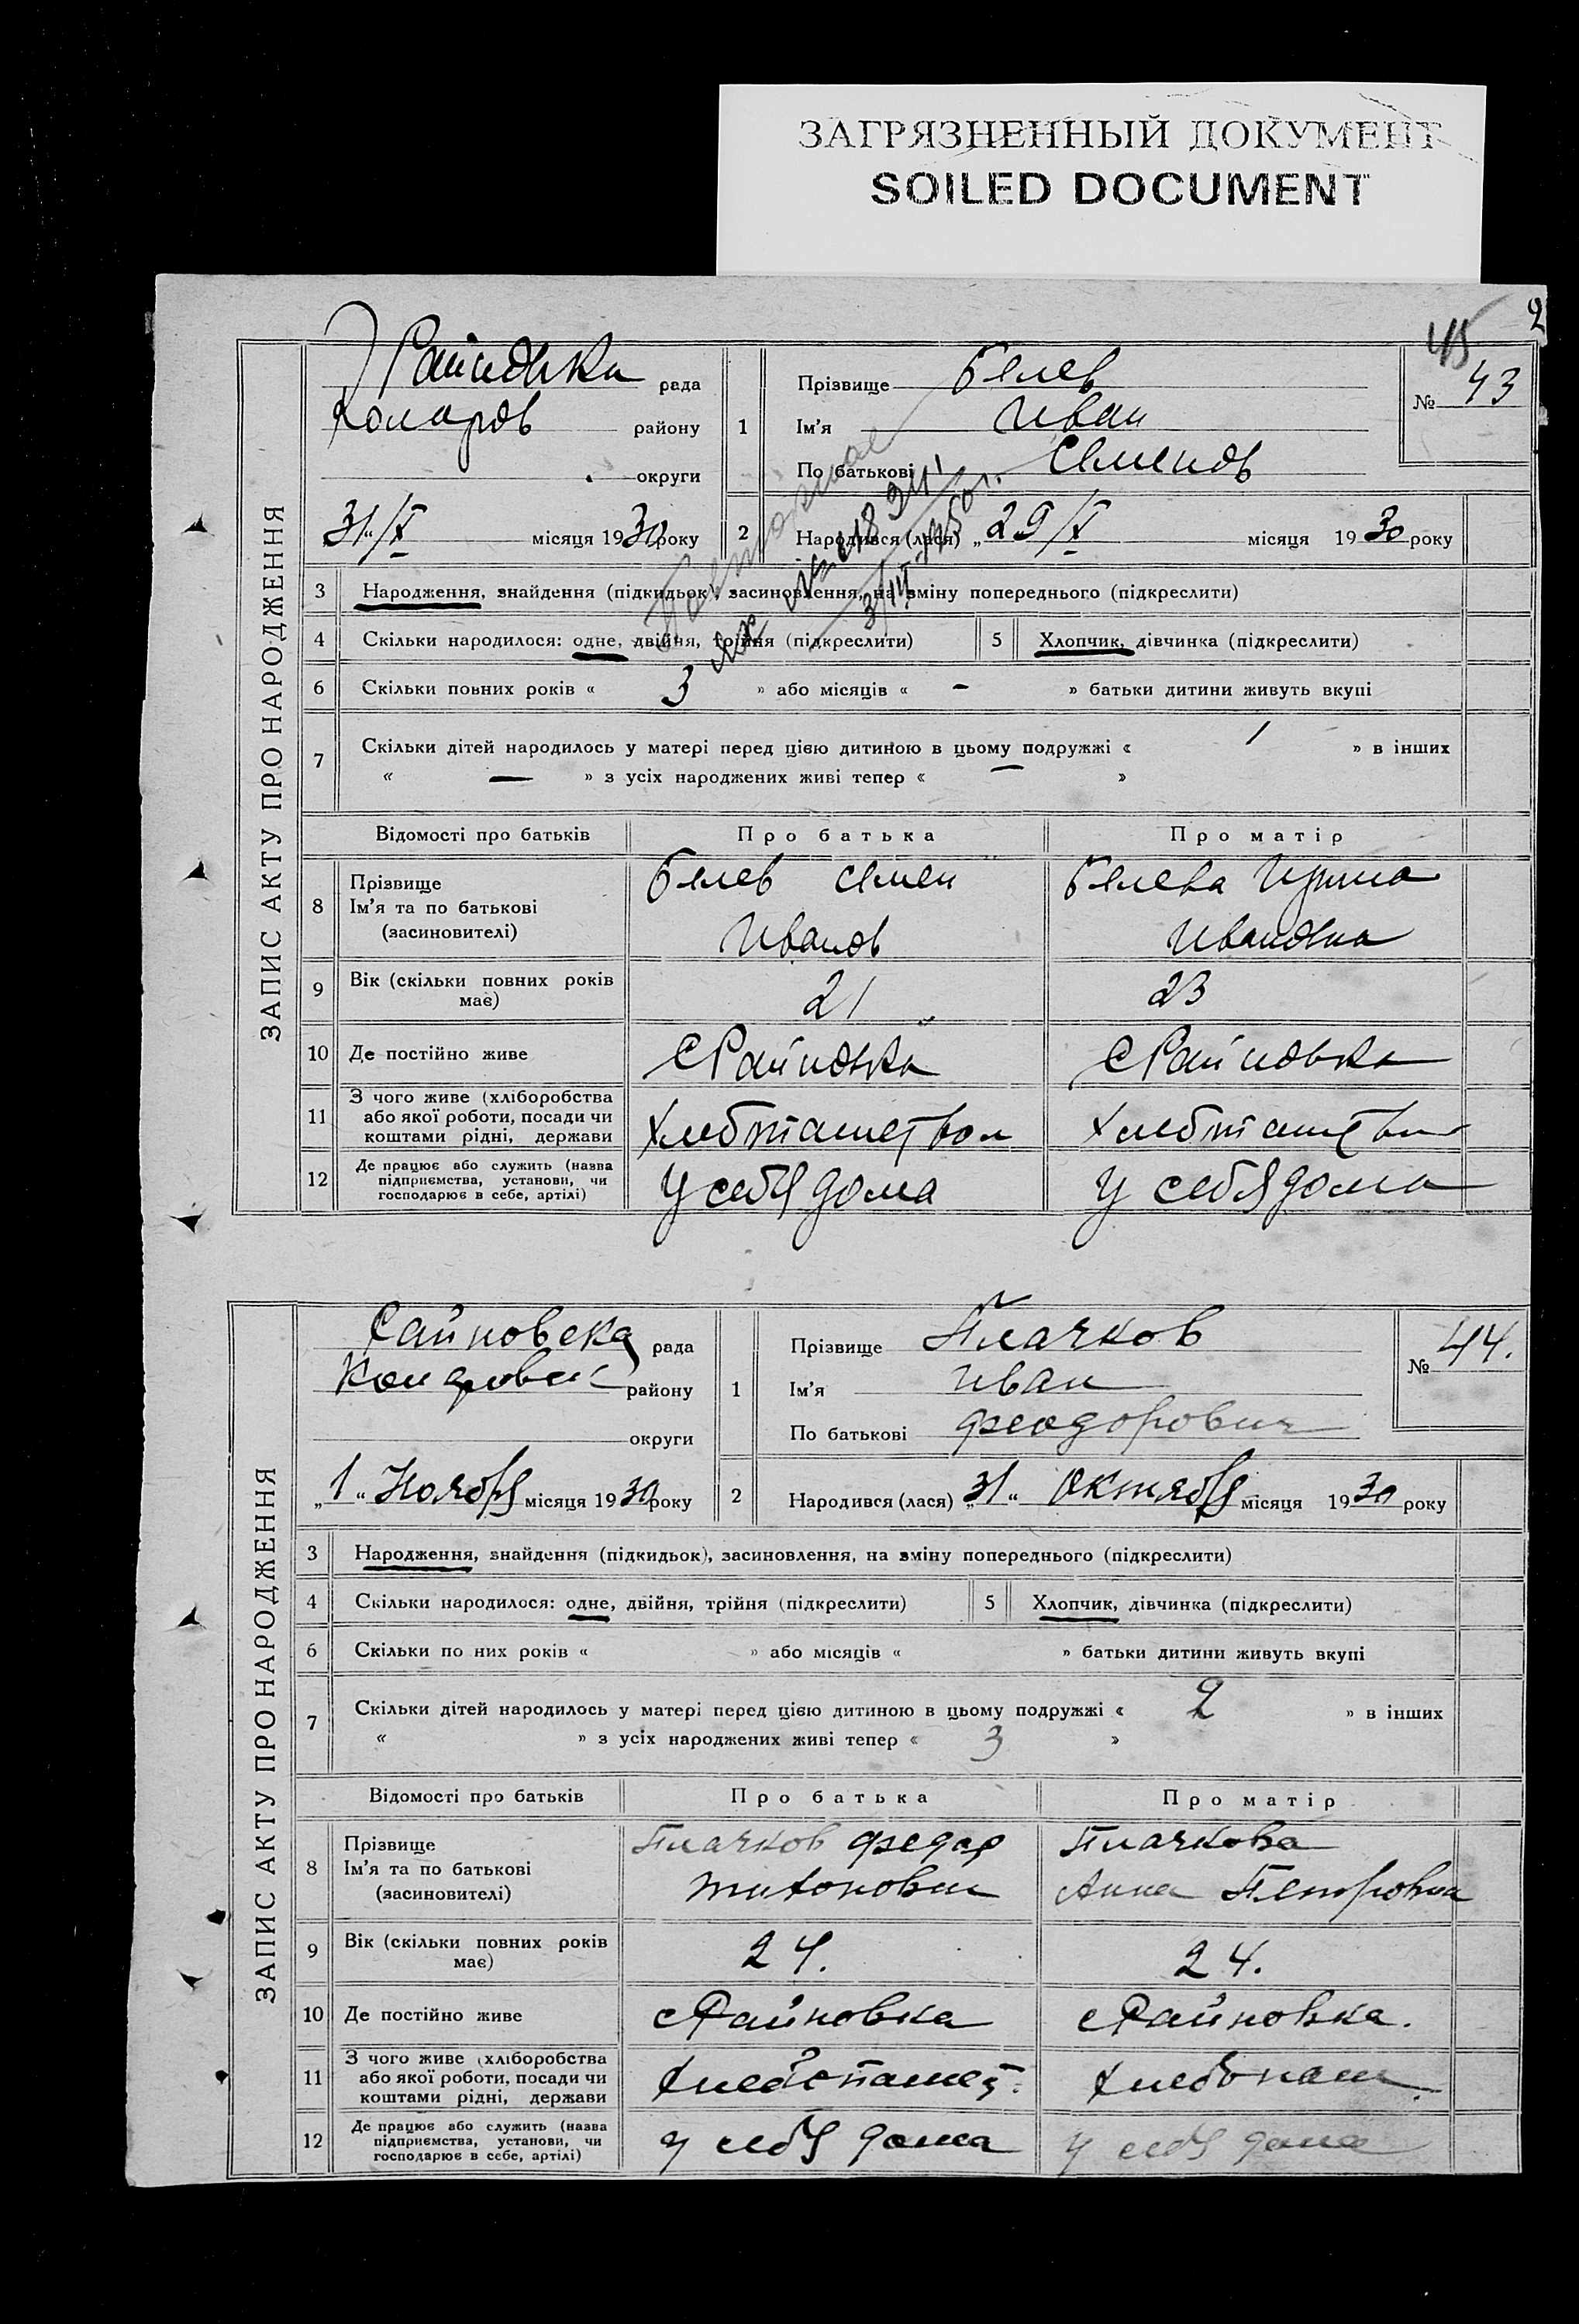 ЗАГРЯЗНЕННЫЙ ДОКУМЕНТ
SOILED DOCUMENT
2
45
ЗАПИС АКТУ ПРО НАРОДЖЕННЯ
Райновка рада
Комаров району
округи
31/X місяця 1930 року
1
Прізвище Белев
Ім'я Иван
По батькові Семенов
№ 43
2
Народився (лася) „29/X місяця 1930 року
Повторное
3/III 1950 г.
3 Народження, знайдення (підкидьок), засиновлення, на зміну попереднього (підкреслити)
4 Скільки народилося: одне, двійня, трійня (підкреслити) 5 Хлопчик, дівчинка (підкреслити)
6 Скільки повних років « 3 » або місяців « – » батьки дитини живуть вкупі
7 Скільки дітей народилось у матері перед цією дитиною в цьому подружжі « 1 » в інших
« — » з усіх народжених живі тепер « — »
Відомості про батьків Про батька Про матір
8 Прізвище
Ім'я та по батькові
(засиновителі)
Белев Семен
Иванов
Белева Ирина
Ивановна
9 Вік (скільки повних років
має)
21 23
10 Де постійно живе с Райновка с Райновка
11 З чого живе (хліборобства
або якої роботи, посади чи
коштами рідні, держави
12 Де працює або служить (назва
підприємства, установи, чи
господарює в себе, артілі)
у себя дома у себя дома
ЗАПИС АКТУ ПРО НАРОДЖЕННЯ
Райновска рада
району
округи
„1“ Ноября місяця 1930 року
1
Прізвище Плачков
Ім'я Иван
По батькові Феодорович
№ 44.
2
Народився (лася) „31“ Октября місяця 1930 року
3 Народження, знайдення (підкидьок), засиновлення, на зміну попереднього (підкреслити)
4 Скільки народилося: одне, двійня, трійня (підкреслити) 5 Хлопчик, дівчинка (підкреслити)
6 Скільки по них років « » або місяців « » батьки дитини живуть вкупі
7 Скільки дітей народилось у матері перед цією дитиною в цьому подружжі « 2 » в інших
« » з усіх народжених живі тепер « 3 »
Відомості про батьків Про батька Про матір
8 Прізвище
Ім'я та по батькові
(засиновителі)
Плачков Федор
Тихонович
Плачкова
Анна Петровна
9 Вік (скільки повних років
має)
24. 24.
10 Де постійно живе с Райновка с Райновка.
11 З чого живе (хліборобства
або якої роботи, посади чи
коштами рідні, держави
Хлебопашест. Хлебопаш.
12 Де працює або служить (назва
підприємства, установи, чи
господарює в себе, артілі)
у себя дома у себя дома